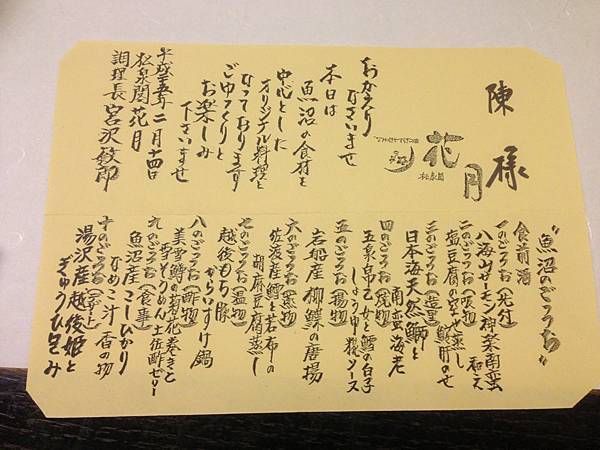 陳様
花月
松泉閣
おかえり
なさいませ
本日は
魚沼の食材を
中心とした
オリジナル料理と
なっております
ごゆっくりと
お楽しみ
下さいませ
平成二十五年二月十四日
松泉閣花月
調理長 宮沢敏郎
"魚沼のごっつぉ"
食前酒
一のごっつぉ(先付)
八海山サーモン神楽南蛮和え
二のごっつぉ(吸物)
塩豆腐の空也蒸し
鮟肝のせ
三のごっつぉ(造里)
日本海天然鰤と
南蛮海老
四のごっつぉ(焼物)
五泉帛乙女と鱈の白子
しょうゆ糀ソース
五のごっつぉ(揚物)
岩船産柳鰈の唐揚
六のごっつぉ(蒸物)
佐渡産鱈と若布の
胡麻豆腐蒸し
七のごっつぉ(温物)
越後もち豚
からいすけ鍋
八のごっつぉ(酢物)
美雪鱒の菊花巻きと
雪そうめん土佐酢ゼリー
九のごっつぉ(食事)
魚沼産こしひかり
なめこ汁 香の物
十のごっつぉ(デザート)
湯沢産越後姫と
ぎゅうひ包み